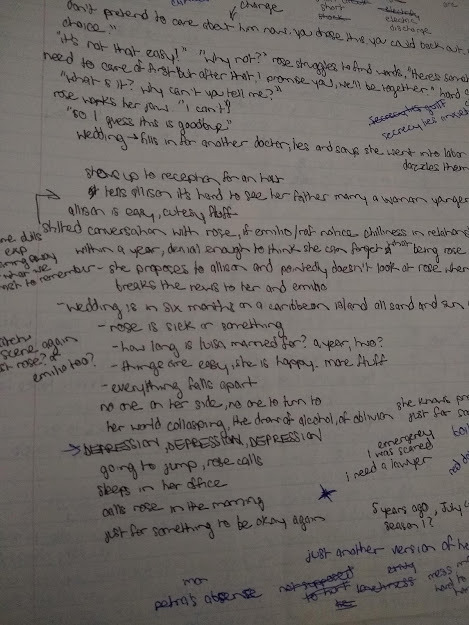 change
short
electric
discharge
don't pretend to care about him now, you chose this, you could back out,
choice."
"it's not that easy!" "why not?" rose struggles to find words, "there's some
need to care of first but after that, I promise you, we'll be together." hard
"what is it? why can't you tell me?"
rose works her jaw. "I can't"
"so I guess this is goodbye"
wedding → fills in for another doctor, lies and says she went into labor
dazzles them
shows up to reception for an hour
tells allison it's hard to see her father marry a woman younger
allison is easy, cutesy fluff
stilted conversation with rose, if emilio/raf notice chilliness in relations
within a year, denial enough to think she can forget being rose
- she proposes to allison and pointedly doesn't look at rose when
breaks the news to her and emilio
- wedding is in six months on a caribbean island all sand and sun
- rose is sick or something
- how long is luisa married for? a year, two?
- things are easy, she is happy - more fluff
- everything falls apart
no one on her side, no one to turn to
her world collapsing, the draw of alcohol, of oblivion
→ DEPRESSION, DEPRESSION, DEPRESSION
going to jump, rose calls
sleeps in her office
calls rose in the morning
just for something to be okay again
scene again
emilio too?
to remember
she knows
just for
emergency
I was scared
I need a lawyer
5 years ago, July
season 1?
just another version of
petra's absence
to hurt loneliness